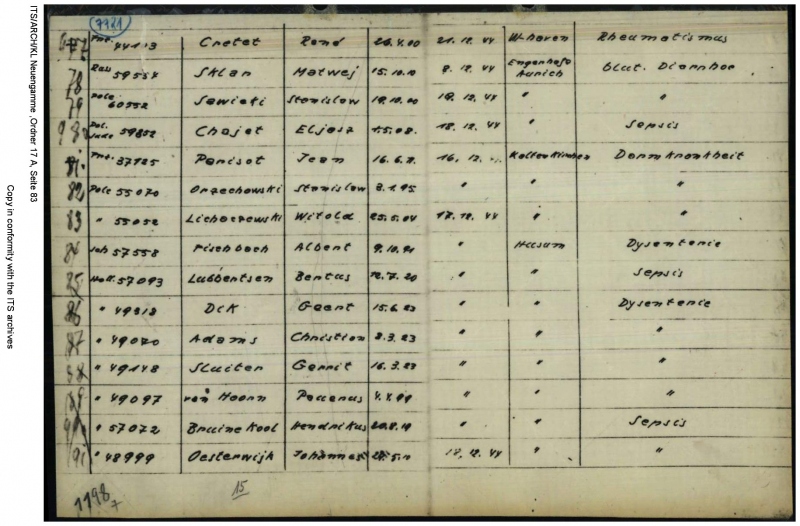 7981
977 Frz. 44113 Cretet René 26.4.00 21.12.44 W-haven Rheumatismus
78 Russ 59554 Sklar Matwej 15.10.10 9.12.44 Engerhafe Aurich blut. Diarrhoe
79 Pole 60552 Sawicki Stanislaw 19.10.00 19.12.44 " "
980 Pol. Jude 59852 Chajet Eljasz 1.5.08. 18.12.44 " Sepsis
81. Frz. 37125 Parisot Jean 16.6. 16.12. Kaltenkirchen Darmkrankheit
82 Pole 55070 Orzechowski Stanislaw 3.1.95 " " "
83 " 55052 Lichaczewski Witold 25.5.04 17.12.44 " "
84 57558 Fischbach Albert 9.10.91 " Husum Dysenterie
85 Holl. 57093 Lubbertsen Bertus 12.7.20 " " Sepsis
86 " 49313 Dik Geert 15.6.23 " " Dysenterie
87 " 49070 Adams Christian 2.3.23 " " "
88 " 49148 Sluiter Gerrit 16.3.23 " " "
89 " 49097 van Hoorn 4.4.99 " " "
990 " 57072 Bruine Kool Hendrikus 20.8.19 " " Sepsis
91 " 48999 Oesterwijk Johannes 17.12.44 " "
15
1198
ITS/ARCH/KL Neuengamme ,Ordner 17 A, Seite 83
Copy in conformity with the ITS archives